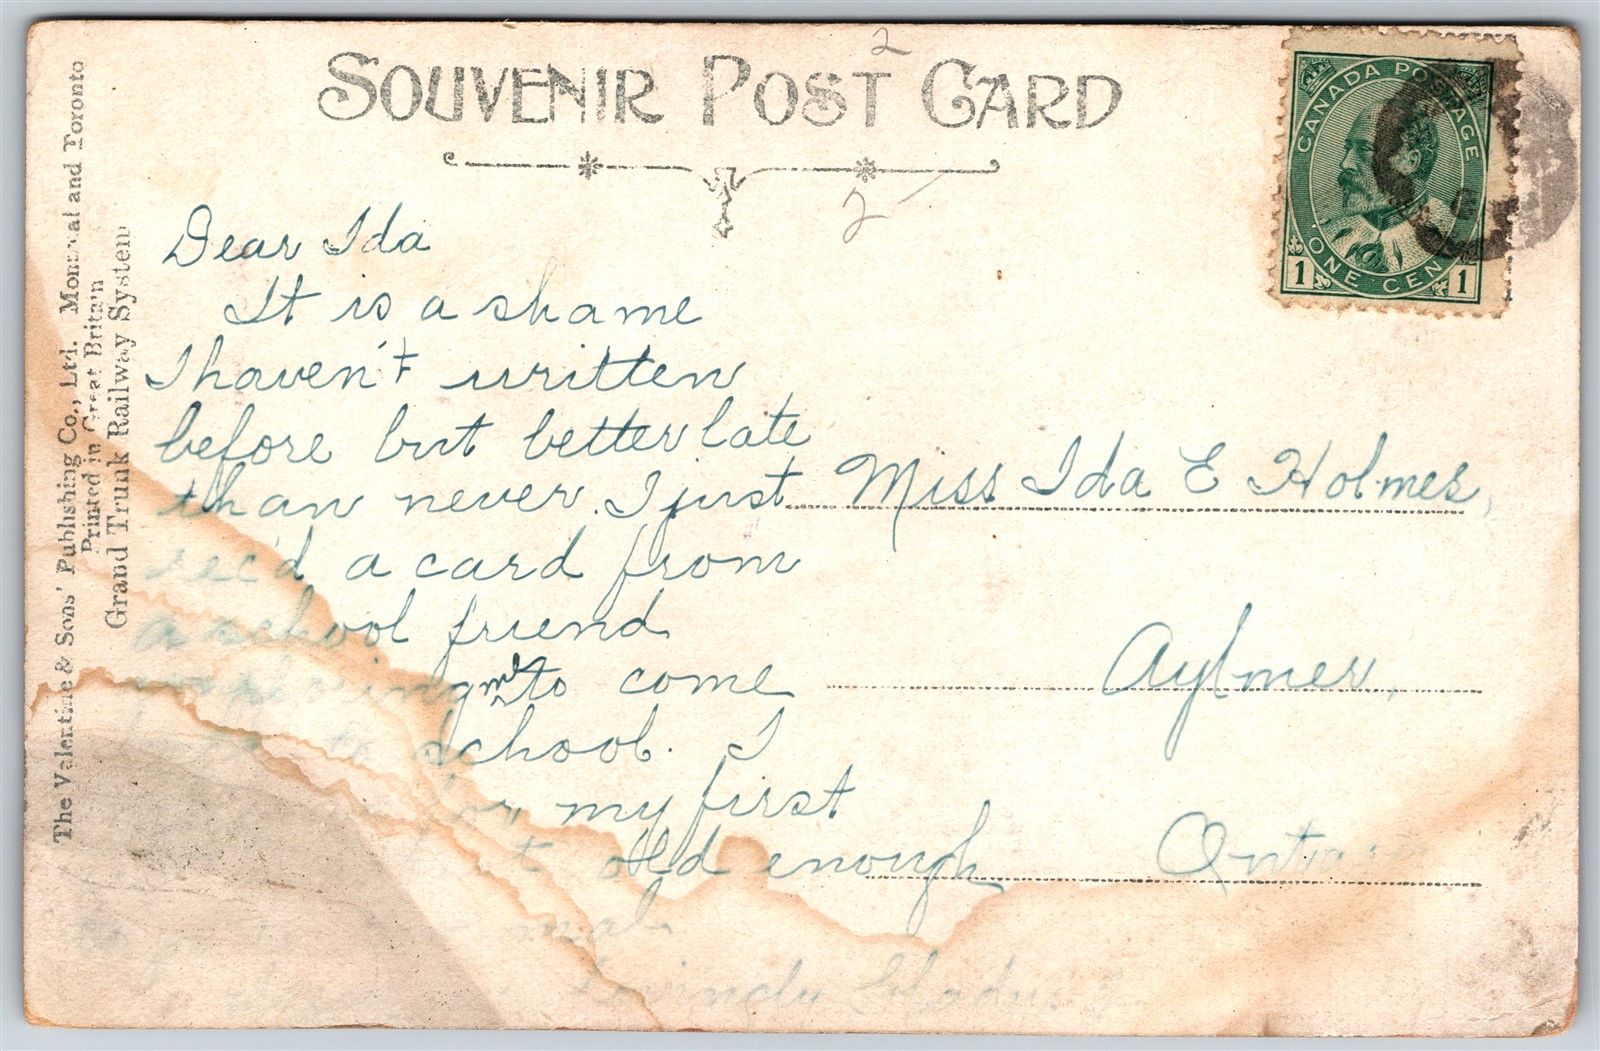 SOUVENIR POST CARD
2
2
CANADA POSTAGE
ONE CENT
1 1
The Valentine & Sons' Publishing Co., Ltd. Montreal and Toronto
Printed in Great Britain
Grand Trunk Railway System
Dear Ida
It is a shame
I haven't written
before but better late
than never. I just
rec'd a card from
a school friend
me
to come
to school. I
for my first
old enough
Lovingly Gladys
Miss Ida E Holmes,
Aylmer,
Ont